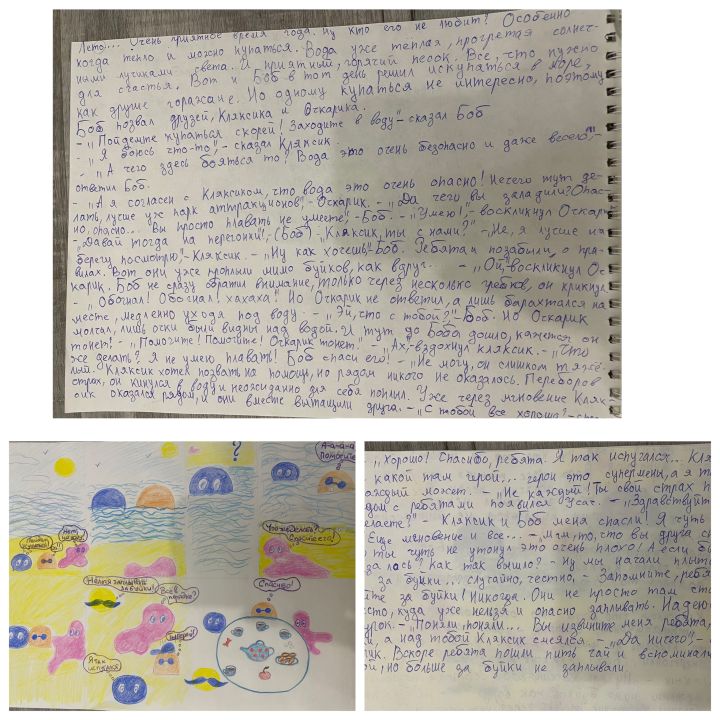 Лето... Очень приятное время года. Ну кто его не любит? Особенно
когда тепло и можно купаться. Вода уже теплая, прогретая солнеч-
ными лучиками света. И приятный, горячий песок. Все, что нужно
для счастья. Вот и Боб в тот день решил искупаться в море,
как другие горажане. Но одному купаться не интересно, поэтому
Боб позвал друзей, Кляксика и Очкарика.
- „Пойдемте купаться скорей! Заходите в воду"- сказал Боб
- „Я боюсь что-то",- сказал Кляксик.
- „А чего здесь бояться то? Вода это очень безопасно и даже весело",-
ответил Боб.
- „А я согласен с Кляксиком, что вода это очень опасно! Нечего тут де-
лать, лучше уж парк аттракционов!- Очкарик. - „Да чего вы заладили? Опас-
но, опасно... Вы просто плавать не умеете,- Боб. - „Умею!",- воскликнул Очкарик
„Давай тогда на перегонки!",- (Боб) - Кляксик, ты с нами?" - „Не, я лучше на
берегу посмотрю",- Кляксик. - „Ну как хочешь"- Боб. Ребята и позабыли о пра-
вилах. Вот они уже проплыли мимо буйков, как вдруг... - „Ой",- воскликнул Оч-
карик. Боб не сразу обратил внимание, только через несколько гребков, он крикнул
- „Обогнал! Обогнал! хахаха!" Но Очкарик не ответил, а лишь барахтался на
месте, медленно уходя под воду. - „Эй, что с тобой?"- Боб. Но Очкарик
молчал, лишь очки были видны над водой. И тут до Боба дошло, кажется он
тонет! - „Помогите! Помогите! Очкарик тонет." - „Ах",- вздохнул кляксик. - „Что
же делать? Я не умею плавать! Боб спаси его! - „Не могу, он слишком тяжё-
лый. Кляксик хотел позвать на помощь, но рядом никого не оказалось. Переборов
страх, он кинулся в воду и неожиданно для себя поплыл. Уже через мгновение Кляк-
сик оказался рядом, и они вместе вытащили друга. - „С тобой все хорошо?-
А-а-а-а
Помогите
?
Нет
Что же делать?
Спасите его!
Нельзя заплывать
за буйки!
Всё в
порядке?
Спасибо!
Я так
испугался
„Хорошо! Спасибо, ребята. Я так испугался...
какой там герой... герои это супермены, а я
каждый может. - „Не каждый! Ты свой страх
дом с ребятами появился Усач. - „Здравствуйте
делаете?" - Кляксик и Боб меня спасли! Я чуть
Еще мгновение и все... - что вы друга
ты чуть не утонул это очень плохо! А если бы
Как так вышло? - Ну мы начали
за буйки... случайно, честно, - Запомните,
за буйки! Никогда. Они не просто там
куда уже нельзя и опасно заплывать. Надеюсь
урок. - „Поняли, поняли... Вы извините меня ребята,
а над тобой Кляксик смеялся. - „Да ничего"-
Вскоре ребята пошли пить чай и
но больше за буйки не заплывали.